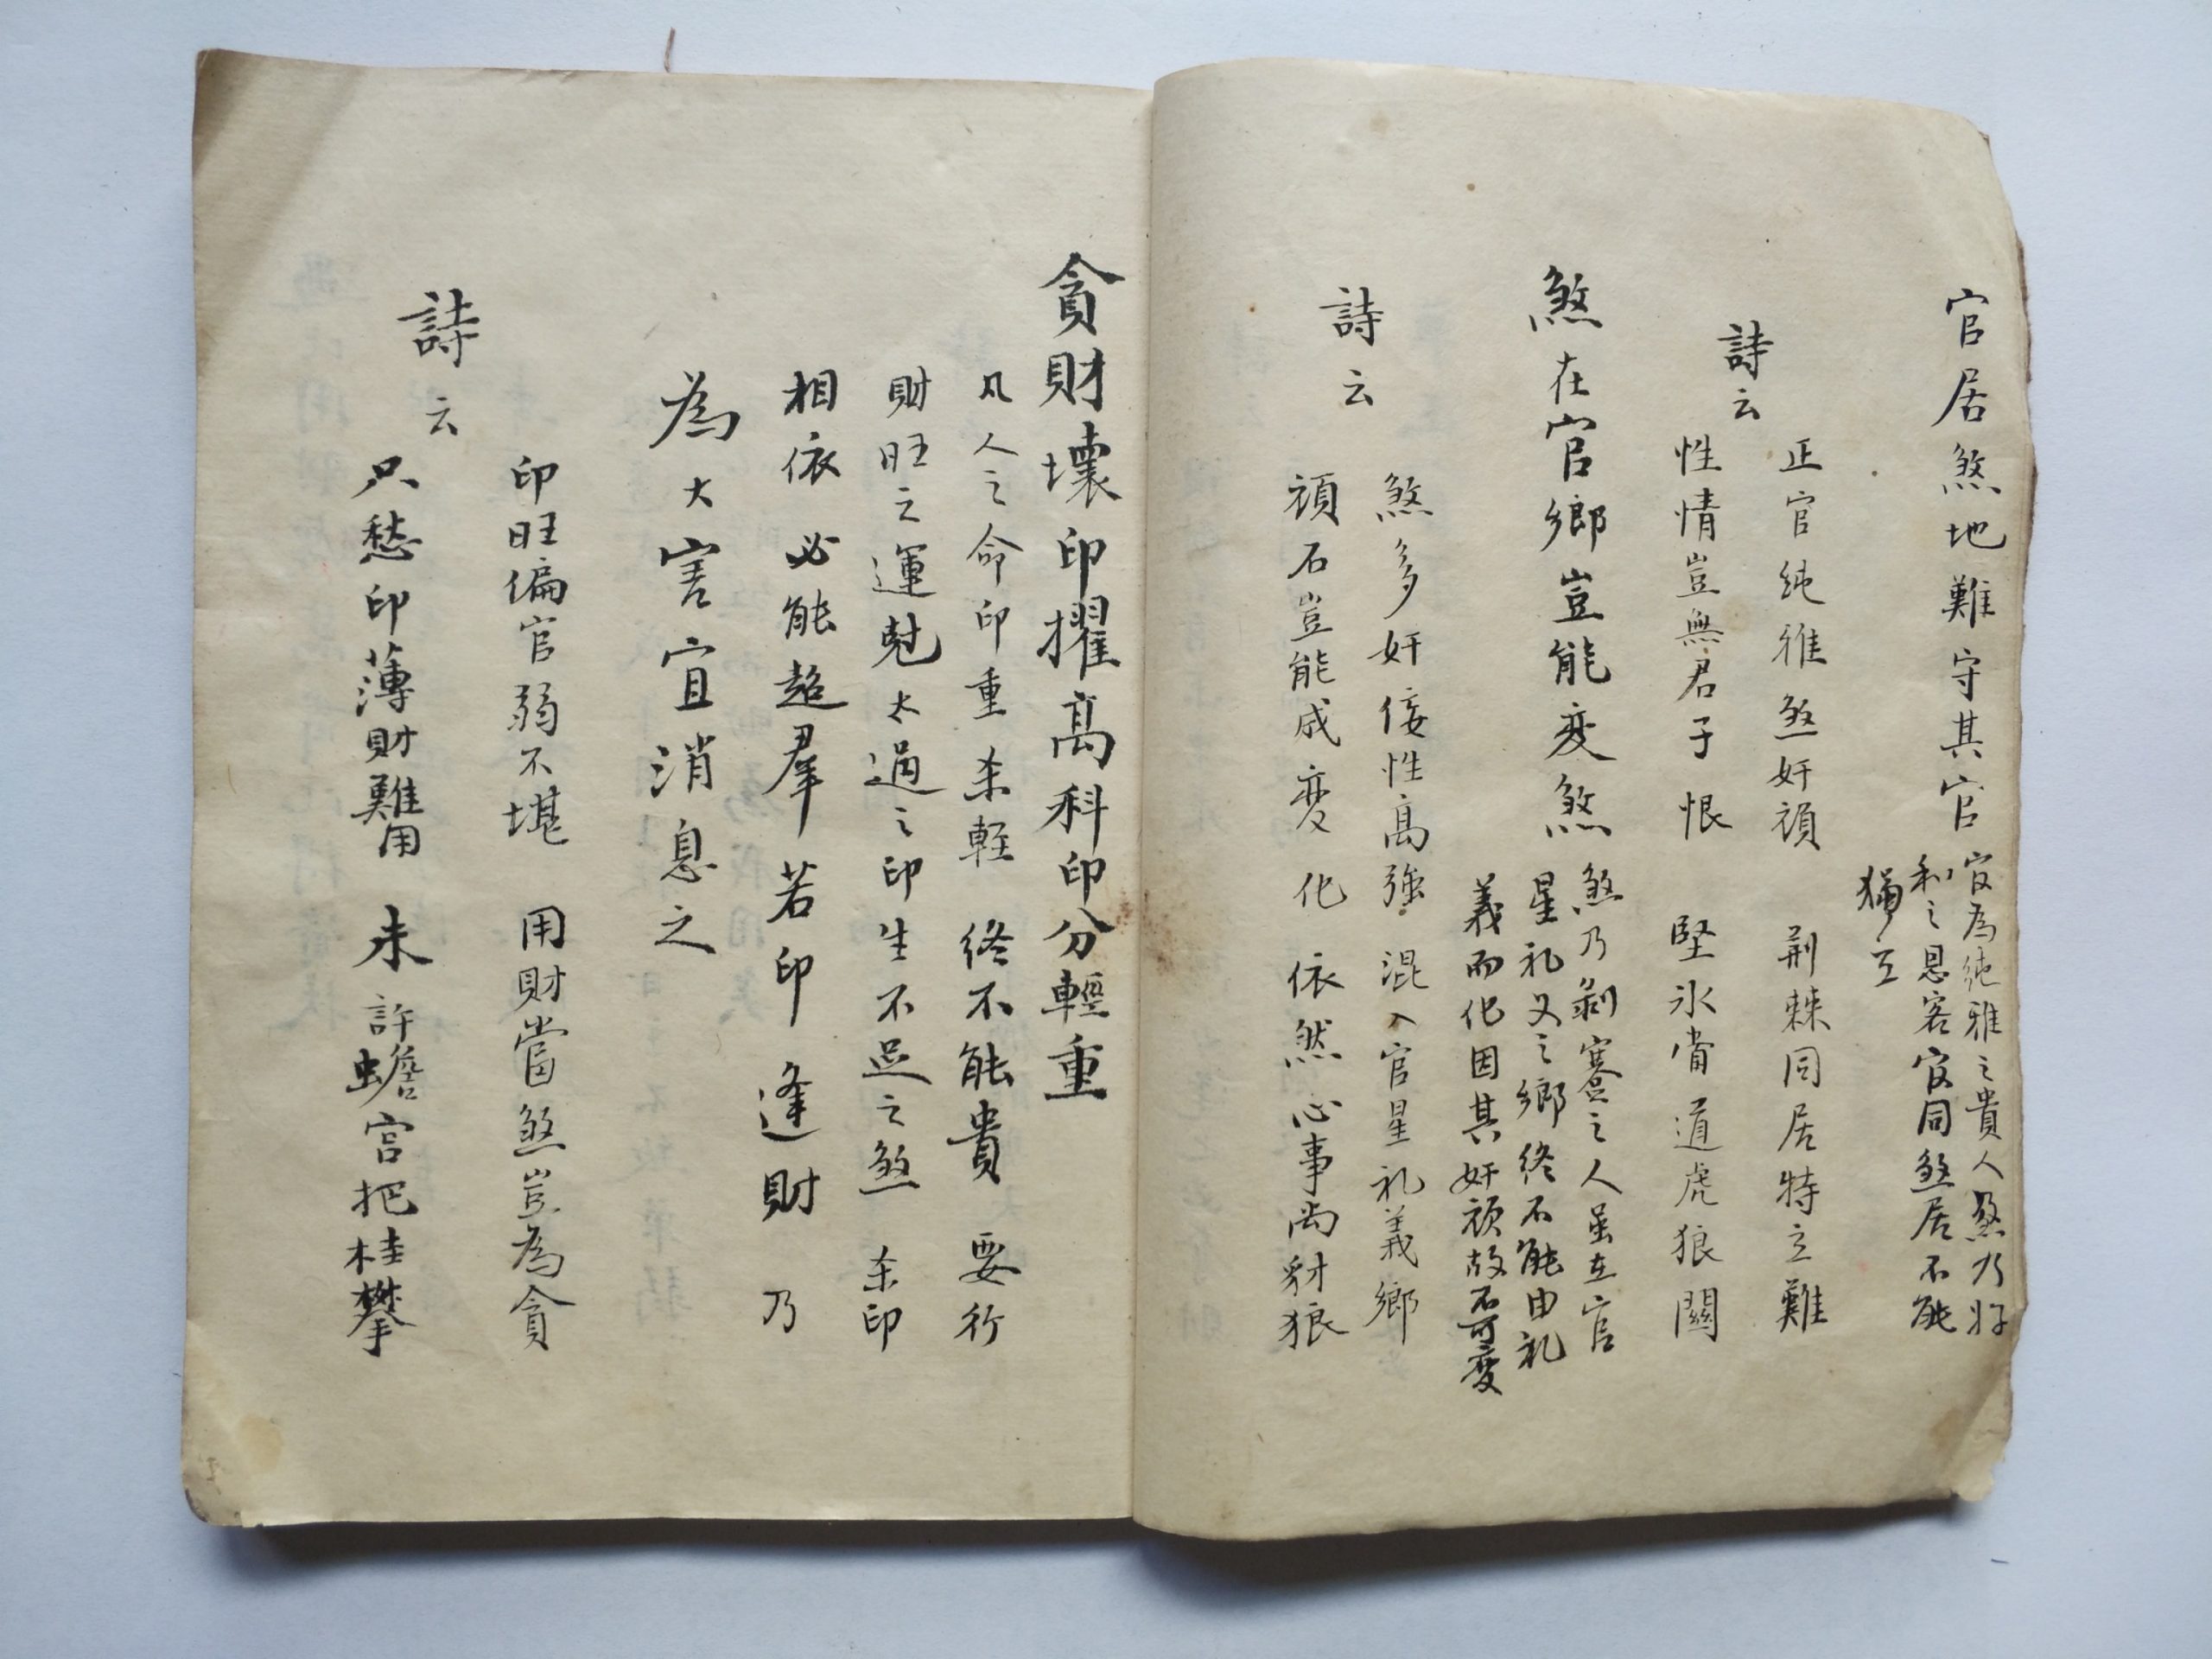 官居煞地難守其官
官為純雅之貴人煞乃奸
利之恩客官同煞居不能
獨立
詩云
正官純雅煞奸頑 荆棘同居特立難
性情豈無君子恨 堅氷當道虎狼關
煞在官鄉豈能变煞
煞乃剝蹇之人虽在官
星礼义之鄉终不能由礼
義而化因其奸頑故不可变
詩云
煞多奸佞性高強 混入官星礼義鄉
頑石豈能成变化 依然心事尚豺狼
貪財壞印擢高科印分輕重
凡人之命印重杀輕 终不能貴 要行
財旺之運尅太過之印生不足之煞 杀印
相依必能超羣若印逢財乃
為大害宜消息之
詩云
印旺偏官弱不堪 用財當煞豈為貪
只愁印薄財難用 未許蟾宮把桂攀